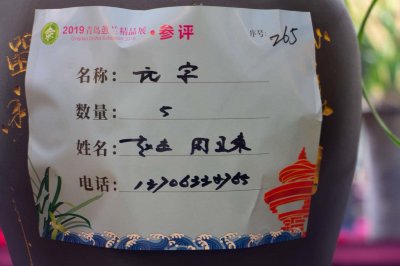 2019青岛蕙兰精品展·参评
序号: 265
名称: 元字
数量: 5
姓名: 周卫东
电话: 13706328765